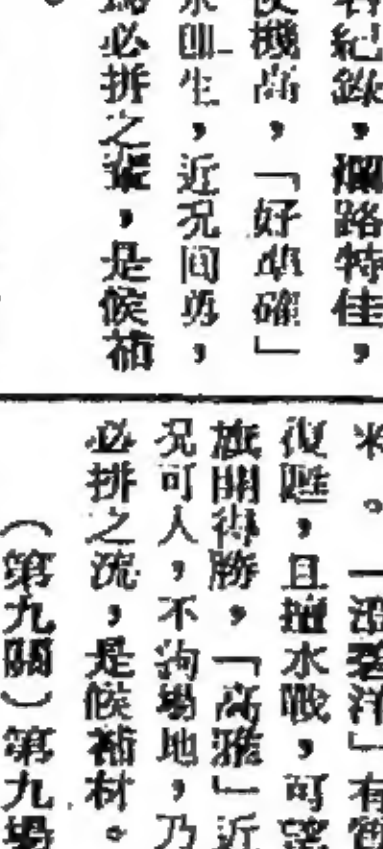 紀錄,爛路特佳,
機高,「好準確」
生,近況間勇,
必拼之選,是候補
米。「碧洋」有
復甦,且擅水戰,可望
旗開得勝,「高雅」近
況可人,不拘場地,乃
必拼之流,是候補材。
(第九關)第九場